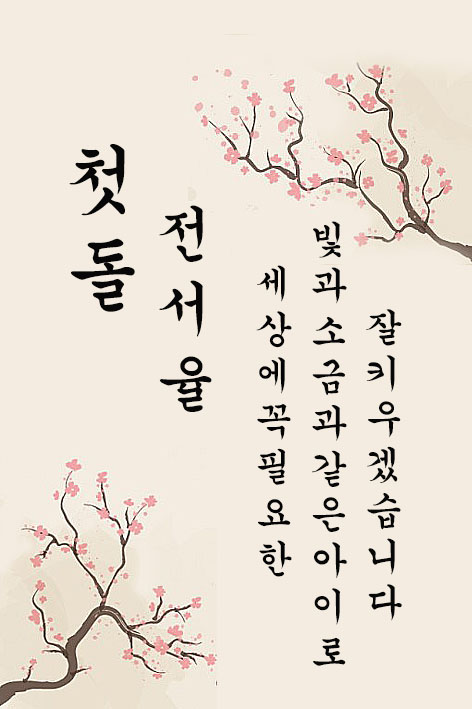 첫돌
전서율
세상에꼭필요한
빛과소금과같은아이로
잘키우겠습니다